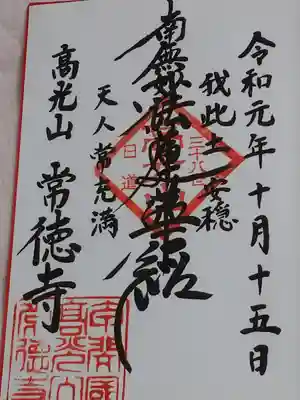 令和元年十月十五日
我此土安穏
南無妙法蓮華経
天人常充満
高光山 常徳寺
日道